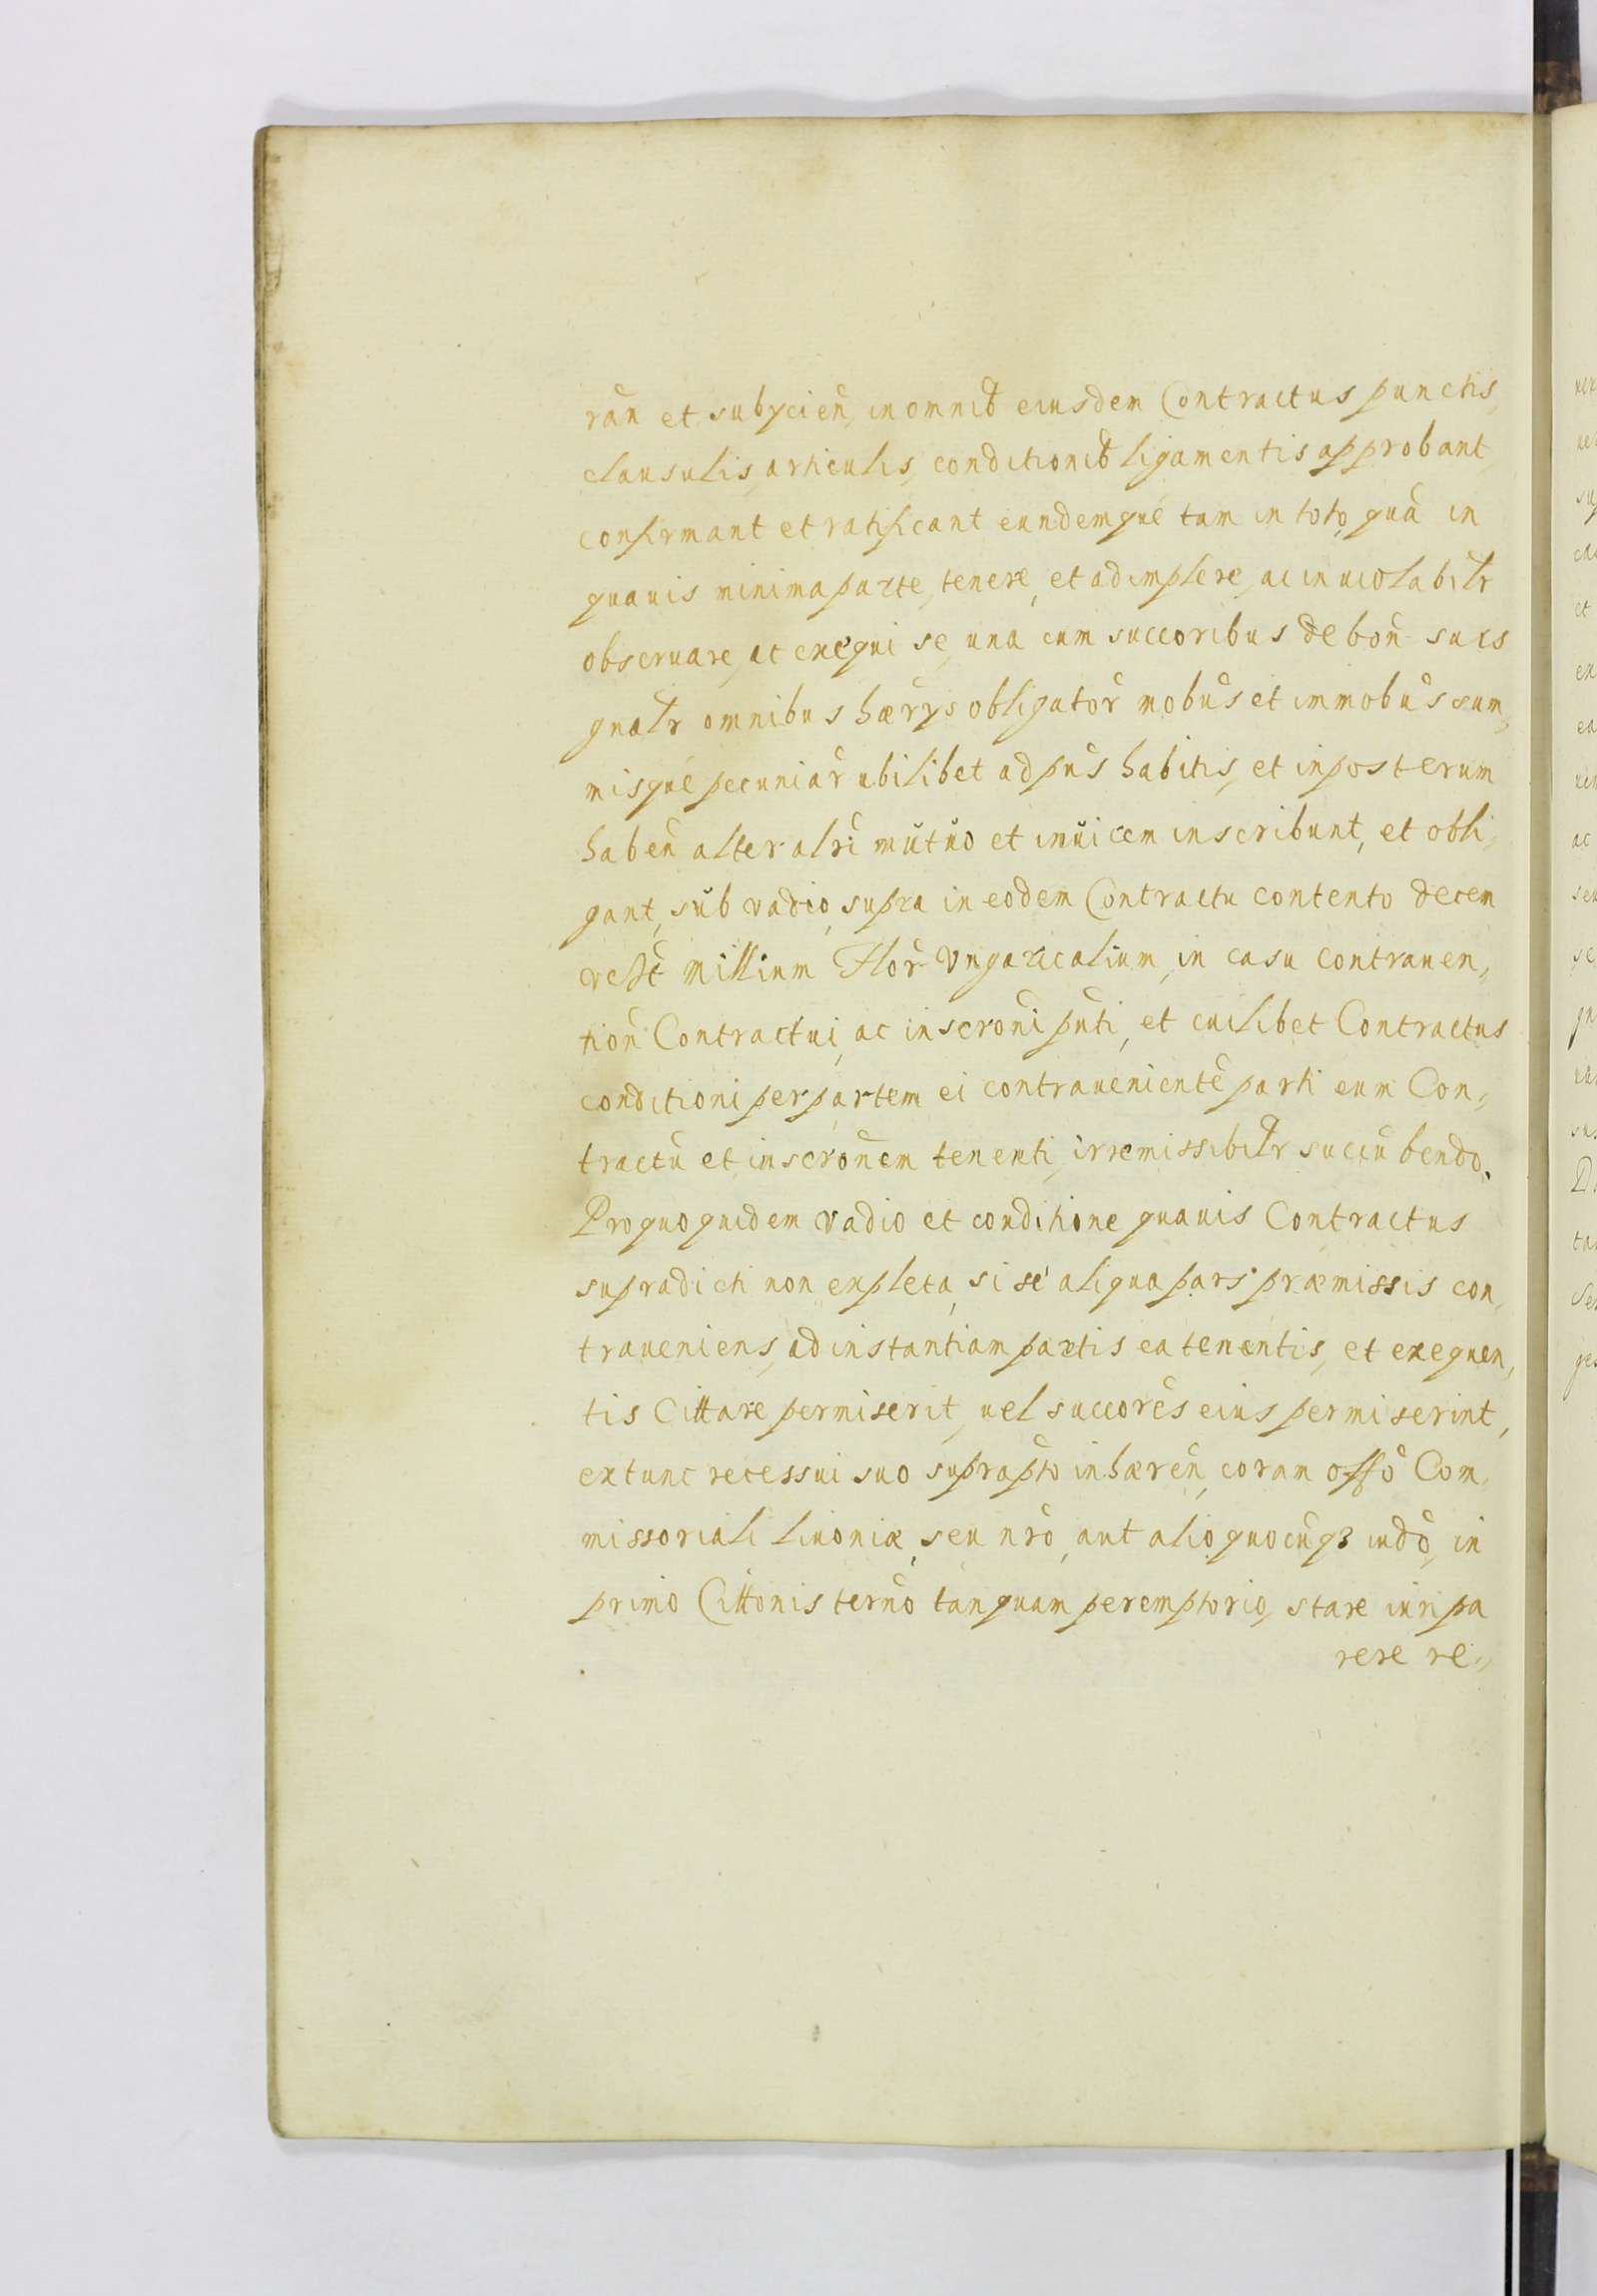 rān et subÿciēn, in omnib9 eiusdem Contractus punctis,
clausulis, articulis, conditionib9 ligamentis approbant
confirmant et ratificant eundemqué tam in toto, quā in
quauis minima parte, tenere, et adimplere, ac inuiolabilr
obseruare, ac exequi se, una cum succoribus de bōn suis
gnālr omnibus hærÿs obligatōr mobūs et immobūs sum,,
misqué pecuniār ubilibet ad pūs habitis, et inposterum
habēn alter alrī mŭtŭo et inŭicem inscribunt, et obli,,
gant, sŭb vadio, supra in eodem Contractu contento decem
vtt Millium Flōr Vngaricalium, in casu contrauen,,
tiōn Contractui, ac inscrōni pūti, et cuilibet Contractus
conditioni per partem ei contrauenientē parti eum Con,,
tractū et inscrōnem tenenti, irremissibilr succūbendo.
Pro quo quidem vadio et conditione quauis Contractus
supradicti non expleta, si sé aliqua pars præmissis con,,
traueniens, ad instantiam partis ea tenentis, et exequen,,
tis Cittare permiserit, uel succorēs eius permiserint,
extunc recessui suo suprapto inhærēn, coram offō Com,,
missoriali Liuoniæ, seu nrō, aut alio quocūq3 iudō, in
primo Cittonis ternō tanquam peremptorio, stare iuri pa
rere re,,